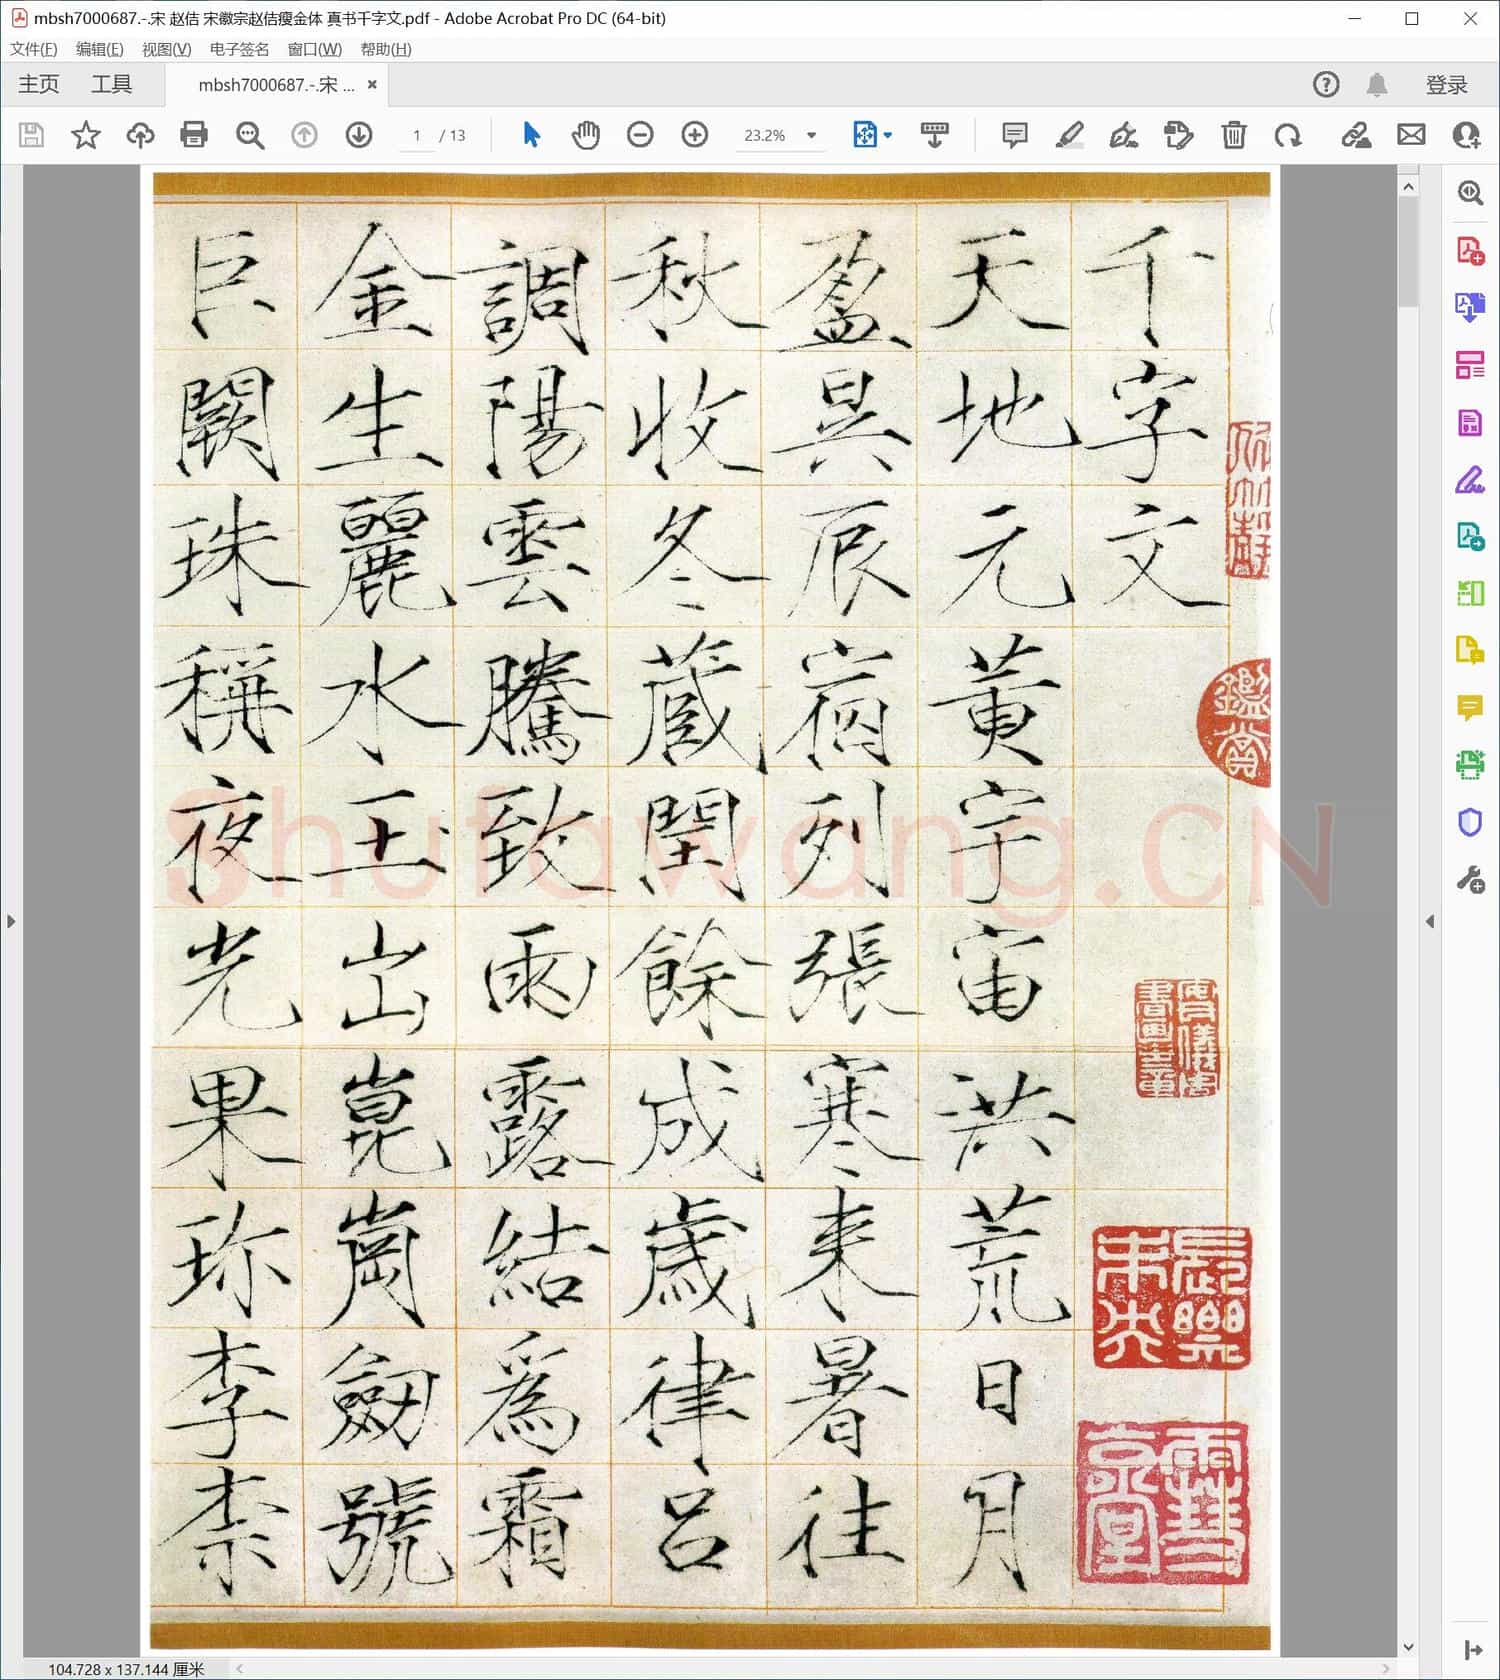 mbsh7000687.-.宋 赵佶 宋徽宗赵佶瘦金体 真书千字文.pdf - Adobe Acrobat Pro DC (64-bit)
文件(F) 编辑(E) 视图(V) 电子签名 窗口(W) 帮助(H)
主页 工具 mbsh7000687.-.宋 ... × 登录
1 / 13 23.2%
千字文
天地元黄宇宙洪荒日月
盈昃辰宿列張寒来暑往
秋收冬蔵閏餘成歲律呂
調陽雲騰致雨露結為霜
金生麗水玉出崑崗劔號
巨闕珠稱夜光果珎李柰
鑑賞
長樂未央
Shufawang.CN
104.728 x 137.144 厘米